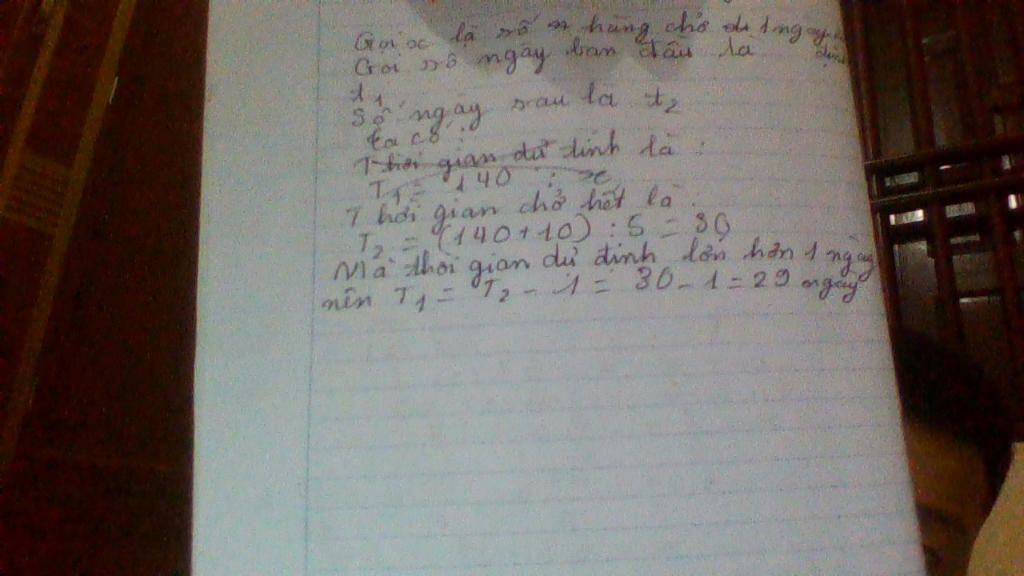 Gọi x là số n hàng chở đi 1 ngày
Gọi số ngày ban đầu là
t1
Số ngày sau là t2
Ta có :
Thời gian dự tính là :
T1 = 140 :
Thời gian chở hết là :
T2 = (140+10) : 5 = 30
Mà thời gian dự định lớn hơn 1 ngày
nên T1 = T2 - 1 = 30 - 1 = 29 ngày